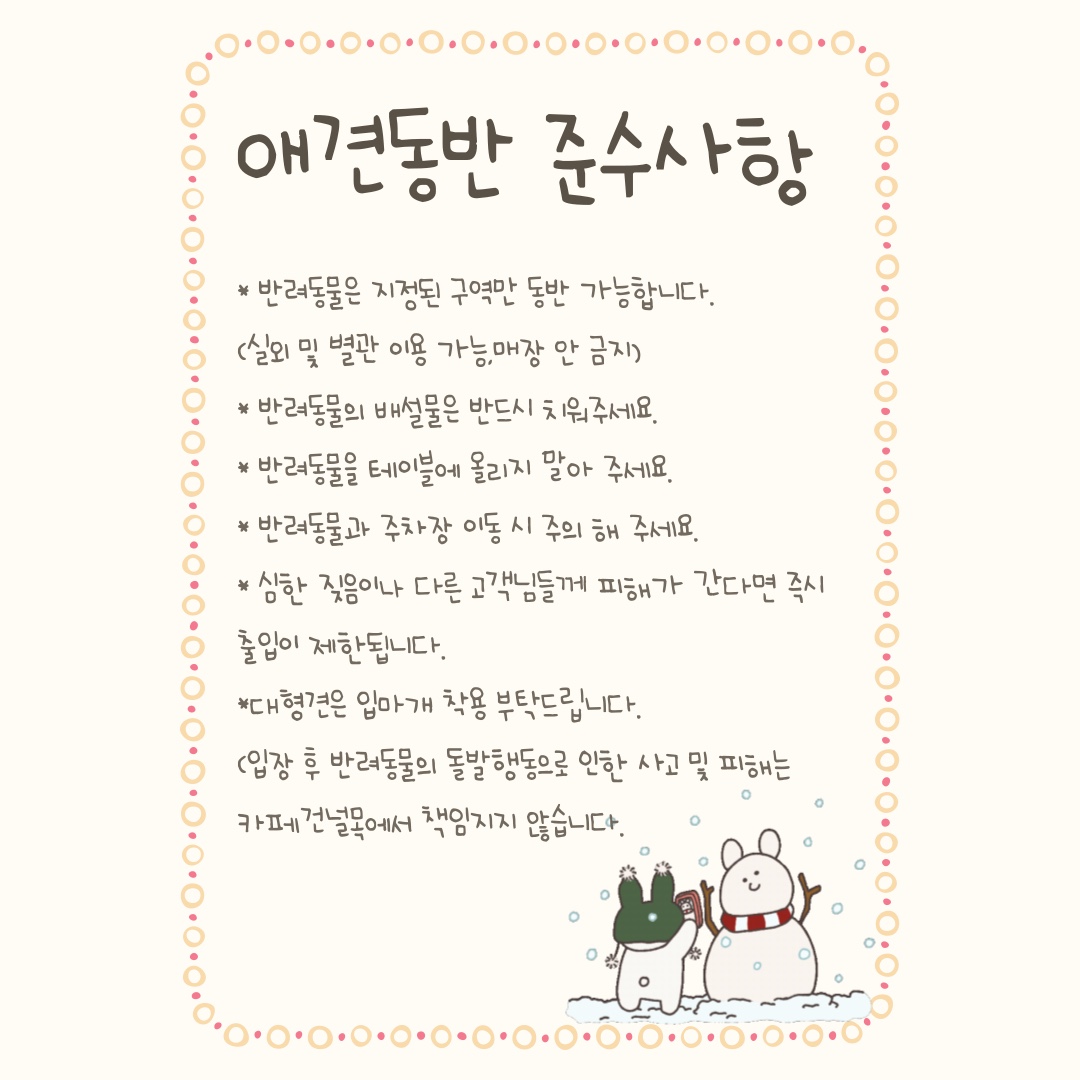 애견동반 준수사항
* 반려동물은 지정된 구역만 동반 가능합니다.
(실외 및 별관 이용 가능,매장 안 금지)
* 반려동물의 배설물은 반드시 치워주세요.
* 반려동물을 테이블에 올리지 말아 주세요.
* 반려동물과 주차장 이동 시 주의 해 주세요.
* 심한 짖음이나 다른 고객님들께 피해가 간다면 즉시
출입이 제한됩니다.
*대형견은 입마개 착용 부탁드립니다.
(입장 후 반려동물의 돌발행동으로 인한 사고 및 피해는
카페건널목에서 책임지지 않습니다.